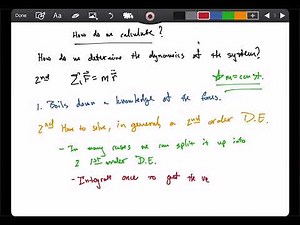 How do we calculate?
How do we determine the dynamics of the system?
2nd ΣF⃗ = m r⃗̈ * m = const.
1. Boils down a knowledge of the forces.
2nd How to solve, in general, a 2nd order D.E.
- In many cases we can split it up into
2 1st order D.E.
- Integrate once to get the ve